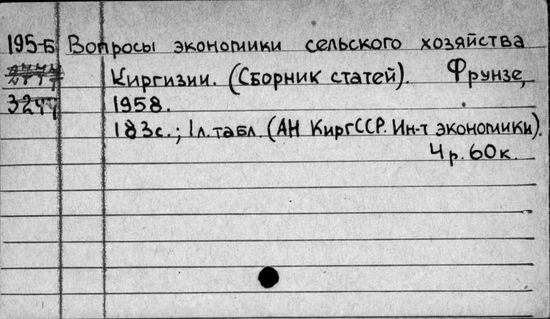 195-Б Вопросы экономики сельского хозяйства
Киргизии. (Сборник статей). Фрунзе,
1958.
183с.; 1л.табл. (АН КиргССР. Ин-т экономики).
4р.60к.